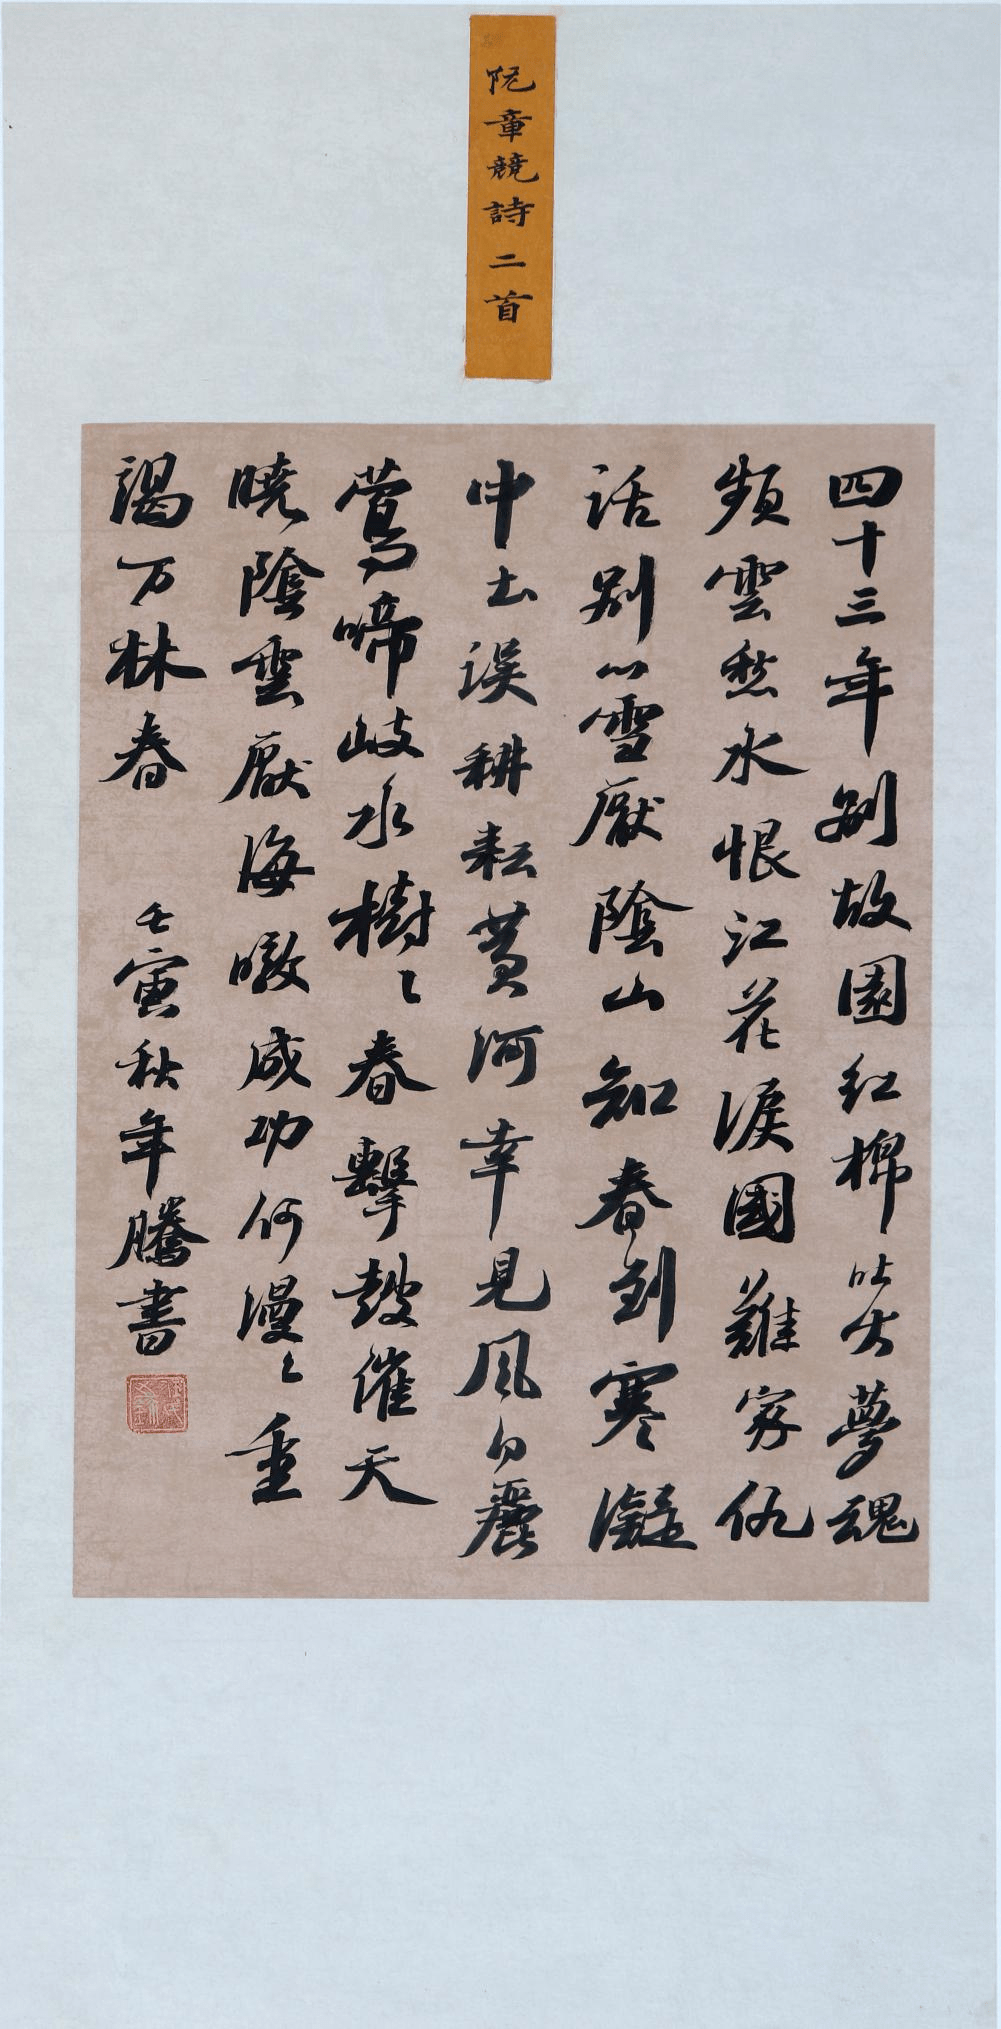 阮章競詩二首
四十三年別故園紅棉吐火夢魂
頻雲愁水恨江花淚國難家仇
話別心雪壓陰山知春到寒凝
中土误耕耘黄河幸見風日麗
鶯啼岐水樹〻春擊鼓催天
曉陰雲壓海暾成功何漫〻重
謁万林春
壬寅秋年騰書